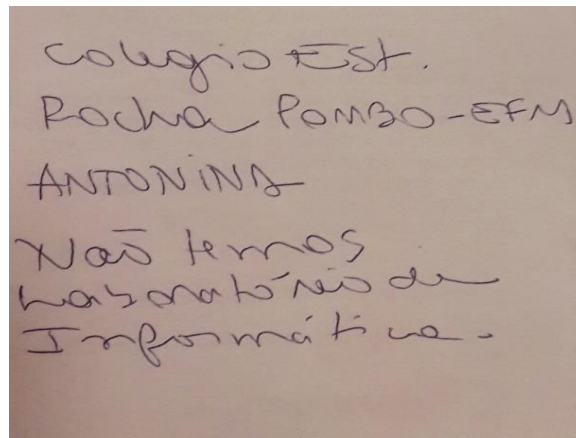 Colégio Est.
Rocha POMBO-EFM
ANTONINA
Não temos
Laboratório de
Informática.